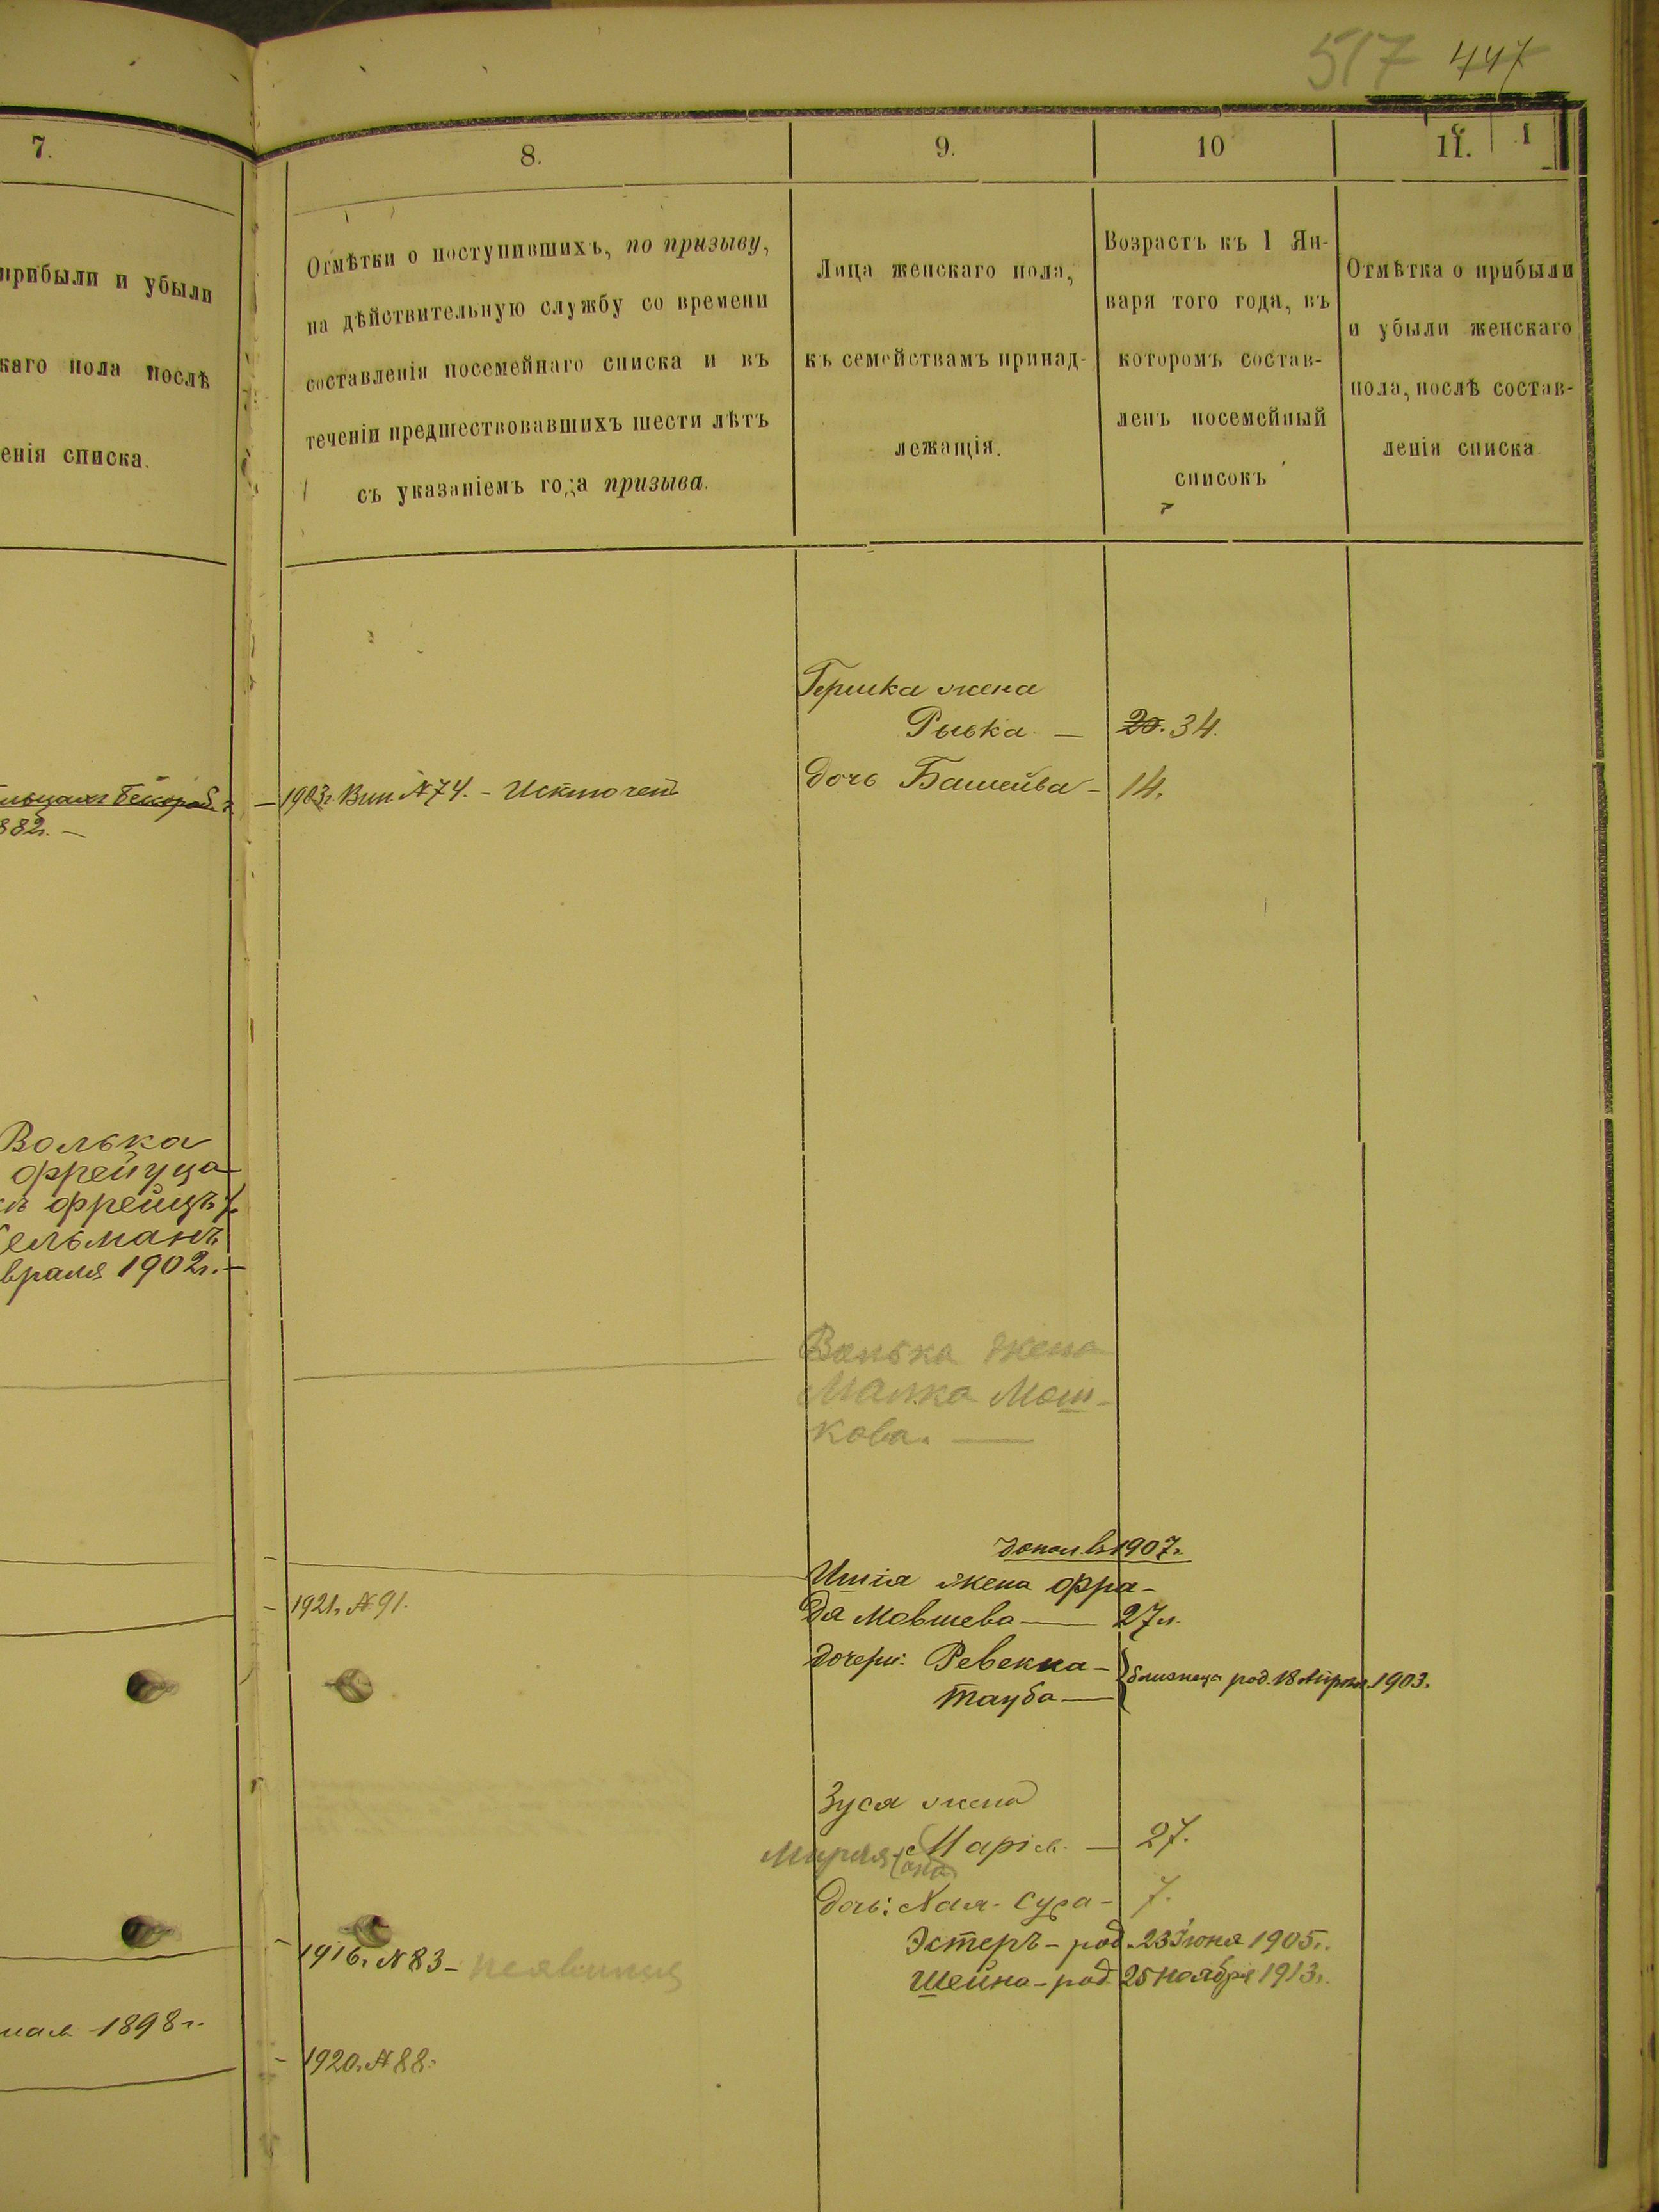 517 447
7.
8.
9.
10
11.
I
прибыли и убыли
каго пола послѣ
енія списка.
Отмѣтки о поступившихъ, по призыву,
на дѣйствительную службу со времени
составленія посемейнаго списка и въ
теченіи предшествовавшихъ шести лѣтъ
съ указаніемъ года призыва.
Лица женскаго пола,
къ семействамъ принад-
лежащія.
Возрастъ къ 1 Ян-
варя того года, въ
которомъ состав-
ленъ посемейный
списокъ
Отмѣтка о прибыли
и убыли женскаго
пола, послѣ состав-
ленія списка
Гершка жена
Рыська — 20. 34.
дочь Башейва — 14.
882г. —
— 1903г. № 74. — Исключенъ
Волька
фрейуца
фрейцъ
ельманъ
враля 1902г. —
жена
Малка Мош-
кова. —
допол. въ 1907г.
Ишія жена Фра-
да Мовшева — 27л.
— 1921г. № 91.
дочери: Ревекка —
Тауба — } близнеца род. 18 Апрѣля 1903.
Зуся жена
Мирля (она) Марім — 27.
дочь: Хая-Сура — 7.
Эстеръ — род. 23 Іюня 1905г.
Шейна — род. 25 ноября 1913г.
— 1916г. № 83 — неявился
1898г.
— 1920г. № 88.